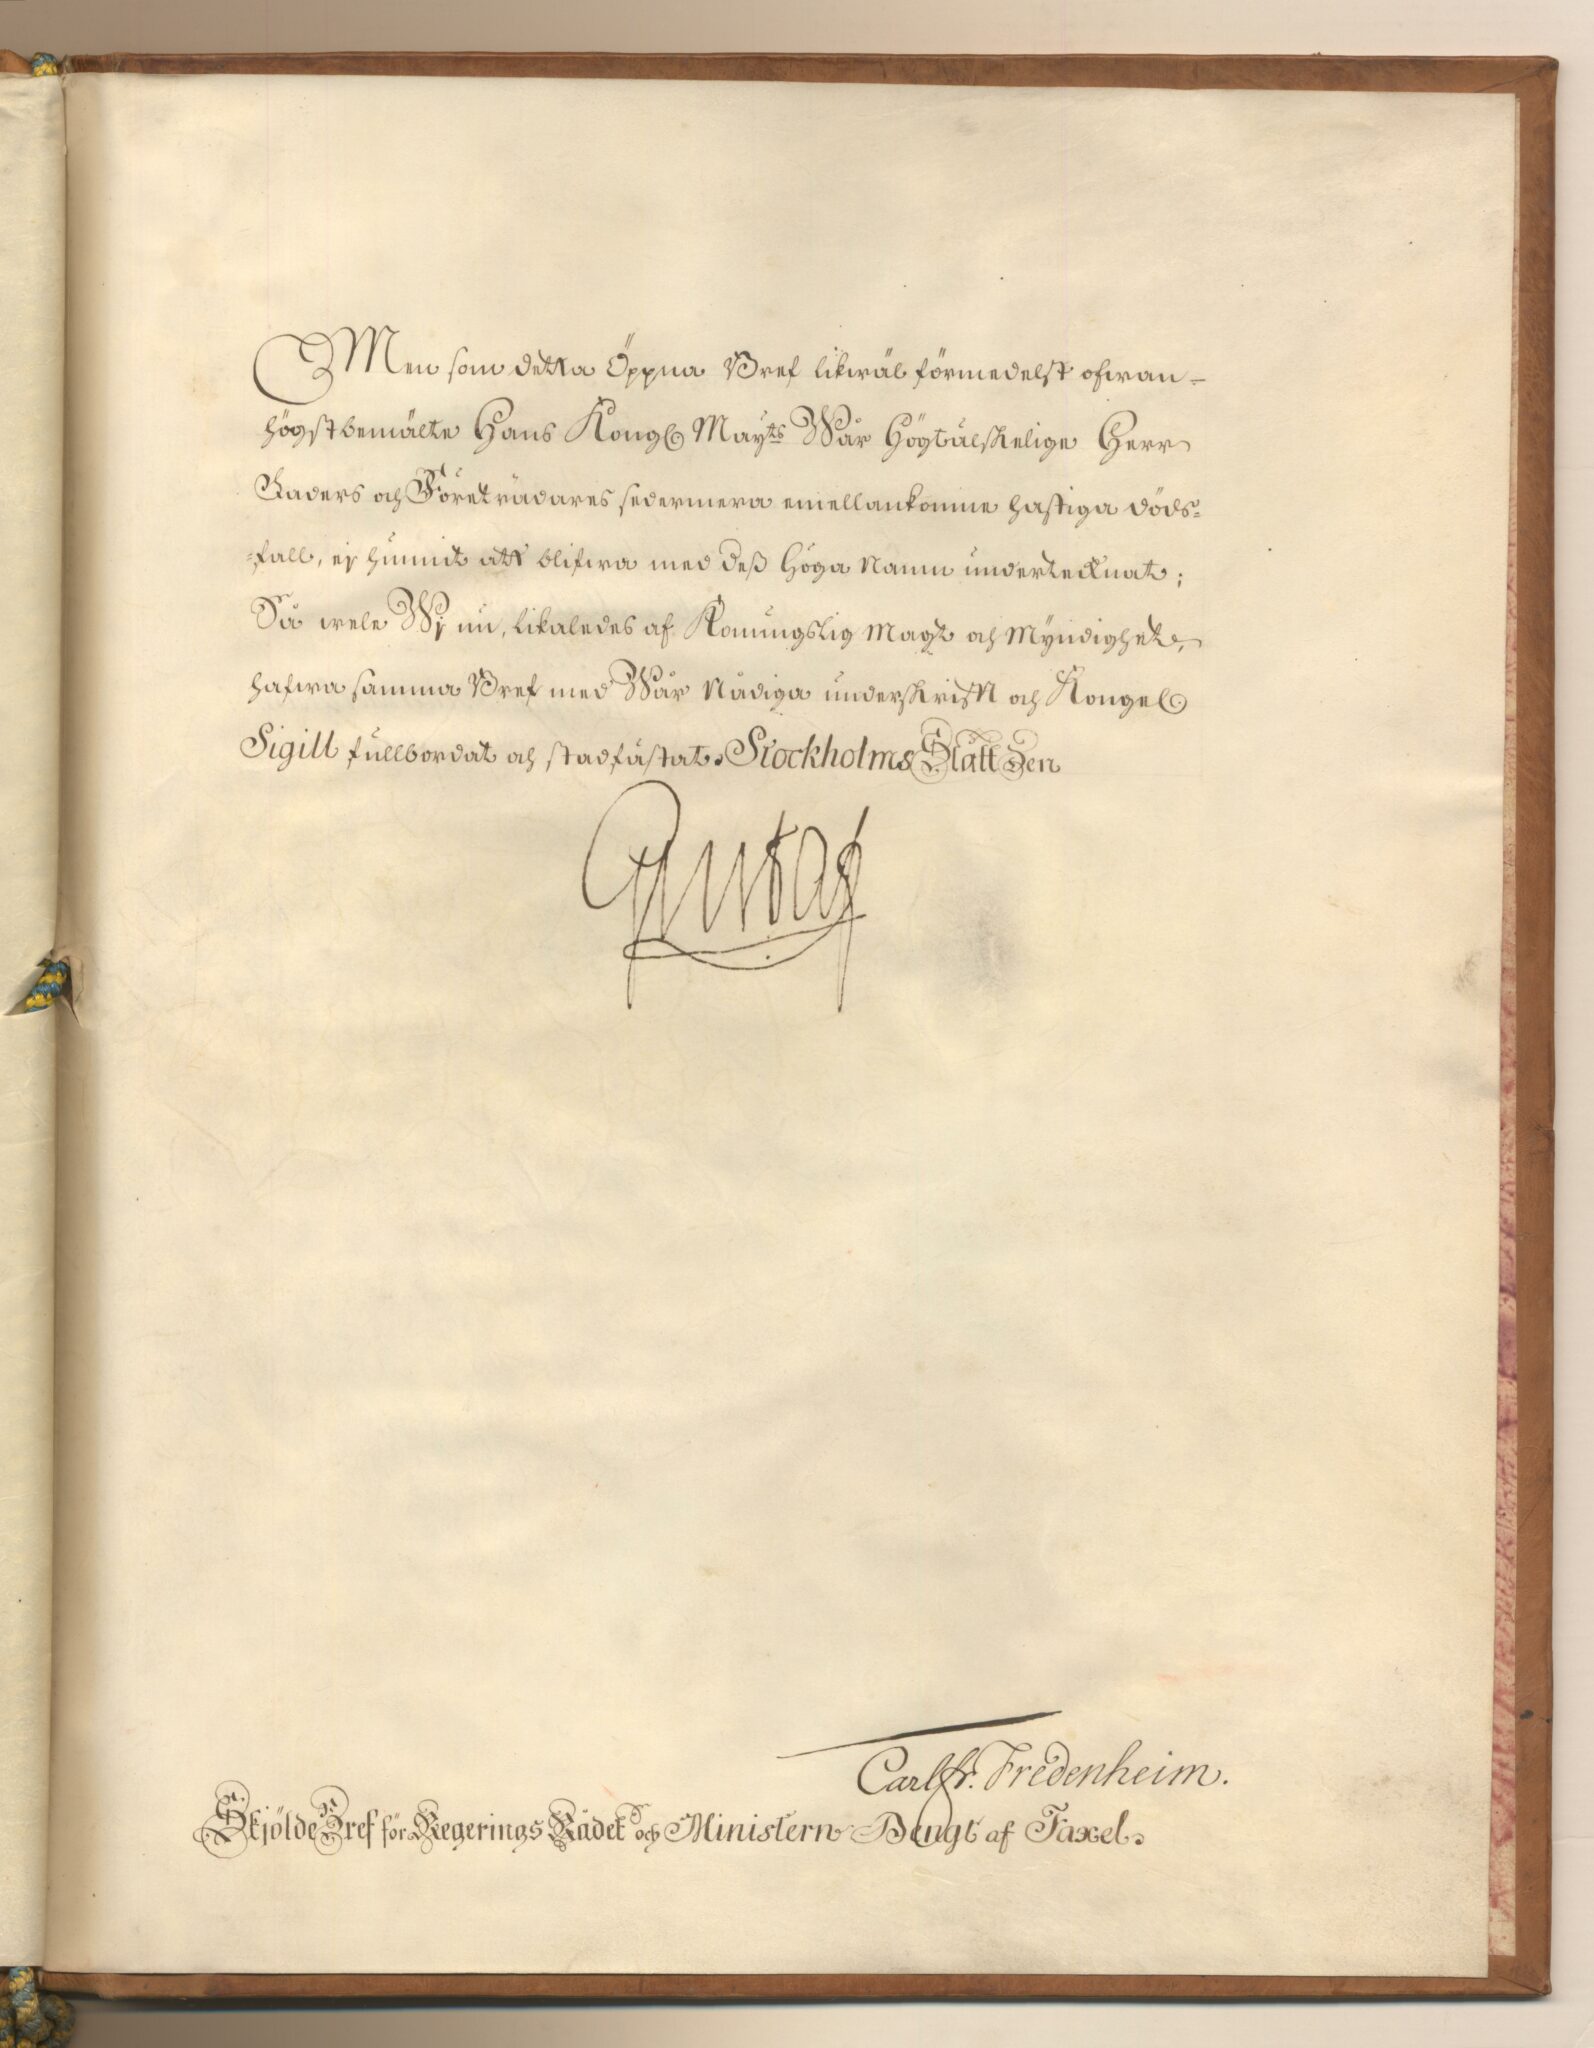 Men som detta Öppna Bref likwäl förmedelst ofwan-
högstbemälte Hans Kongl. Mayts Wår Högtälskelige Herr
Faders och Företrädares sedermera emellankomne hastiga döds-
-fall, ej hunnit att blifwa med deß Höga Namn undertecknat;
Så wele Wj nu, likaledes af Konungslig Magt och Myndighet,
hafwa samma Bref med Wår Nådiga underskrift och Kongel.
Sigill fullbordat och stadfästat. Stockholms Slått Den
Gustaf
Carl Fr. Fredenheim.
SkjöldeBref för Regerings Rådet och Ministern Bengt af Taxel.